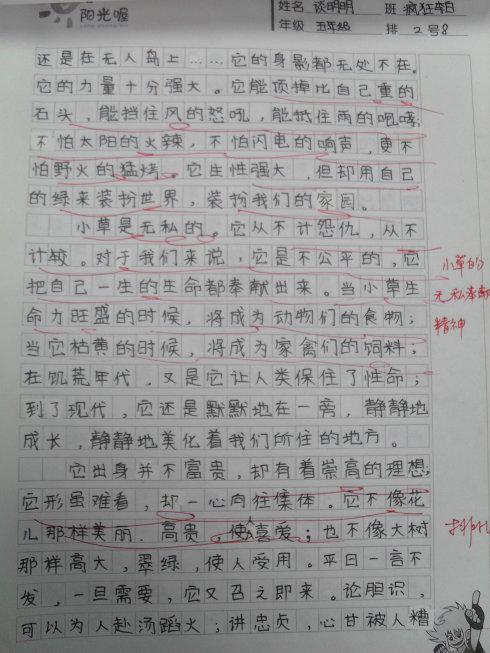 阳光喔
姓名 谈明明 班 疯狂部
年级 五年级 排 2号8
还是在无人岛上……它的身影都无处不在。
它的力量十分强大。它能顶掉比自己重的
石头，能挡住风的怒吼，能抵住雨的咆哮；
不怕太阳的火辣，不怕闪电的响声，更不
怕野火的猛烤。它生性强大，但却用自己
的绿来装扮世界，装扮我们的家园。
小草是无私的。它从不计怨仇，从不
计较。对于我们来说，它是不公平的，它
把自己一生的生命都奉献出来。当小草生
命力旺盛的时候，将成为动物们的食物；
当它枯黄的时候，将成为家禽们的饲料；
在饥荒年代，又是它让人类保住了性命；
到了现代，它还是默默地在一旁，静静地
成长，静静地美化着我们所住的地方。
它出身并不富贵，却有着崇高的理想；
它形虽难看，却一心向往集体。它不像花
儿那样美丽、高贵。使人喜爱；也不像大树
那样高大，翠绿，使人受用。平日一言不
发，一旦需要，它又召之即来。论胆识，
可以为人赴汤蹈火；讲忠贞，心甘被人糟
小草的
无私奉献
精神